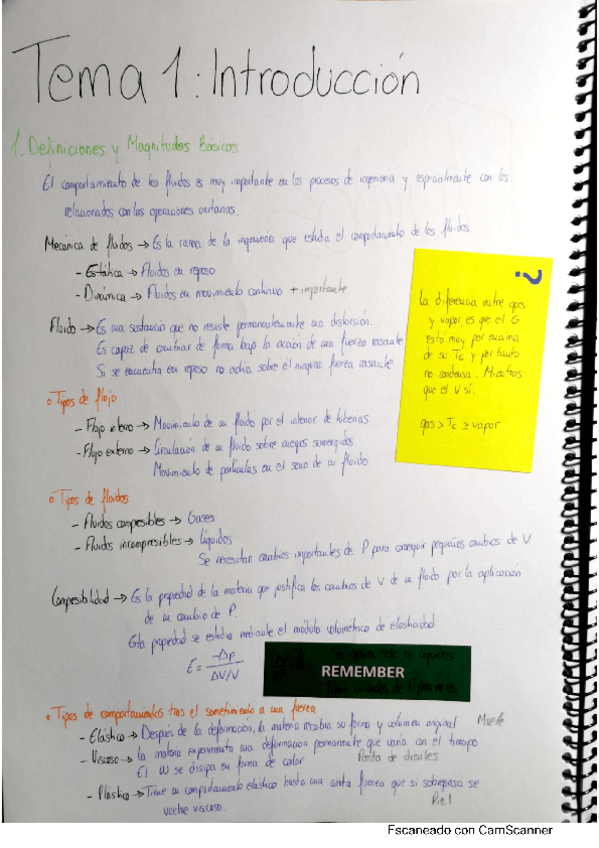 Tema 1: Introducción
1. Definiciones y Magnitudes Básicas
El comportamiento de los fluidos es muy importante en los procesos de ingeniería y especialmente con los
relacionados con las operaciones unitarias.
Mecánica de fluidos → Es la rama de la ingeniería que estudia el comportamiento de los fluidos
- Estática → Fluidos en reposo
- Dinámica → Fluidos en movimiento continuo + importante
Fluido → Es una sustancia que no resiste permanentemente una distorsión.
Es capaz de cambiar de forma bajo la acción de una fuerza cosante
Si se encuentra en reposo no actúa sobre él ninguna fuerza cosante
?
La diferencia entre gas
y vapor, es que el G
está muy por encima
de su Tc y por tanto
no condensa. Mientras
que el V sí.
gas > Tc ≥ vapor
Tipos de flujo
- Flujo interno → Movimiento de un fluido por el interior de tuberías
- Flujo externo → Circulación de un fluido sobre cuerpos sumergidos
Movimiento de partículas en el seno de un fluido
Tipos de fluidos
- Fluidos compresibles → Gases
- Fluidos incompresibles → Líquidos
Se necesitan cambios importantes de P para conseguir pequeños cambios de V
Compresibilidad → Es la propiedad de la materia que justifica los cambios de V de un fluido por la aplicación
de un cambio de P.
Esta propiedad se estudia mediante el módulo volumétrico de elasticidad
E = -Δp / ΔV/V
REMEMBER
Tipos de comportamientos tras el sometimiento a una fuerza
- Elástico → Después de la deformación, la materia recobra su forma y volumen original Muelle
- Viscoso → La materia experimenta una deformación permanente que varía con el tiempo
El W se disipa en forma de calor Pasta de dientes
- Plástico → Tiene un comportamiento elástico hasta una cierta fuerza que si sobrepasa se
vuelve viscoso. Piel
Escaneado con CamScanner